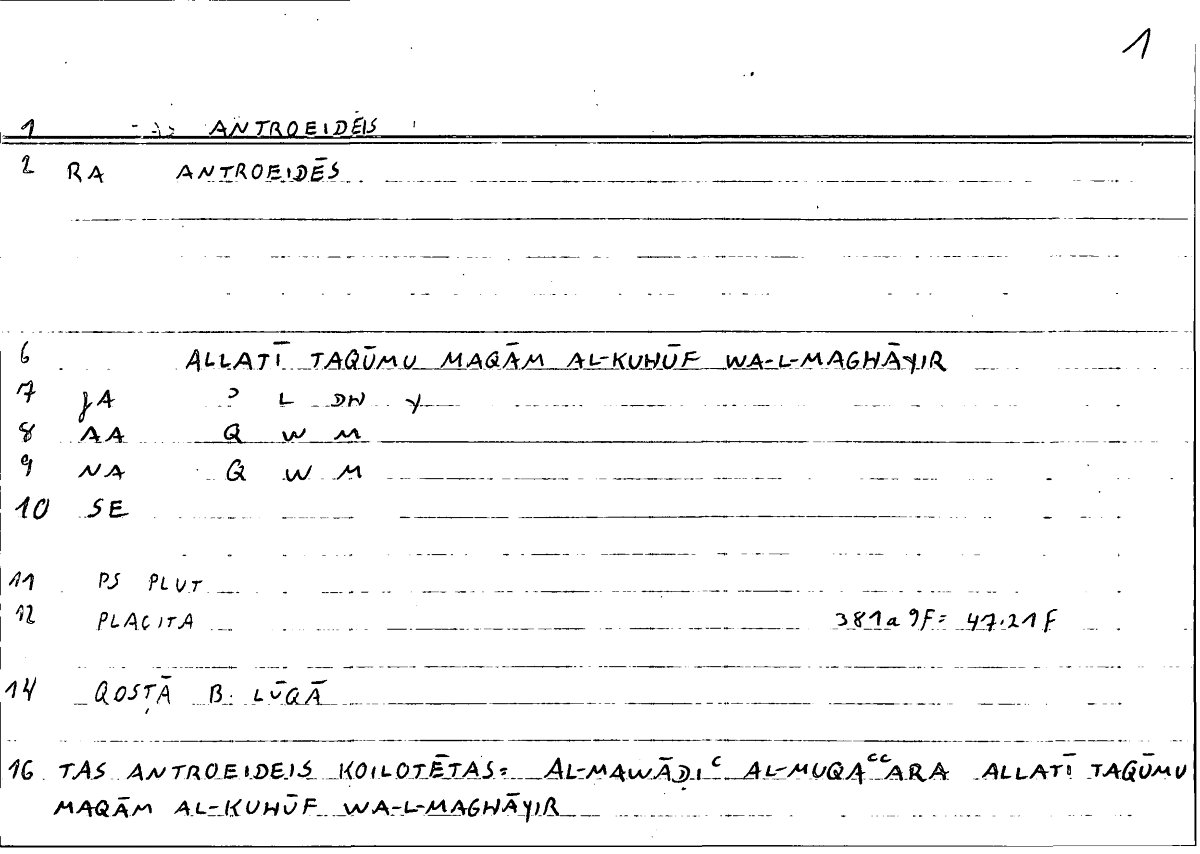 1
1 ANTROEIDEĪS
2 RA ANTROEIDĒS
6 ALLATĪ TAQŪMU MAQĀM AL-KUHŪF WA-L-MAGHĀYIR
7 JA ʾ L DH Y
8 AA Q W M
9 NA Q W M
10 SE
11 PS PLUT
12 PLACITA 381a9F= 47.21F
14 QOSṬĀ B. LŪQĀ
16 TAS ANTROEIDEIS KOILOTĒTAS= AL-MAWĀḌIᶜ AL-MUQAᶜᶜARA ALLATĪ TAQŪMU
MAQĀM AL-KUHŪF WA-L-MAGHĀYIR